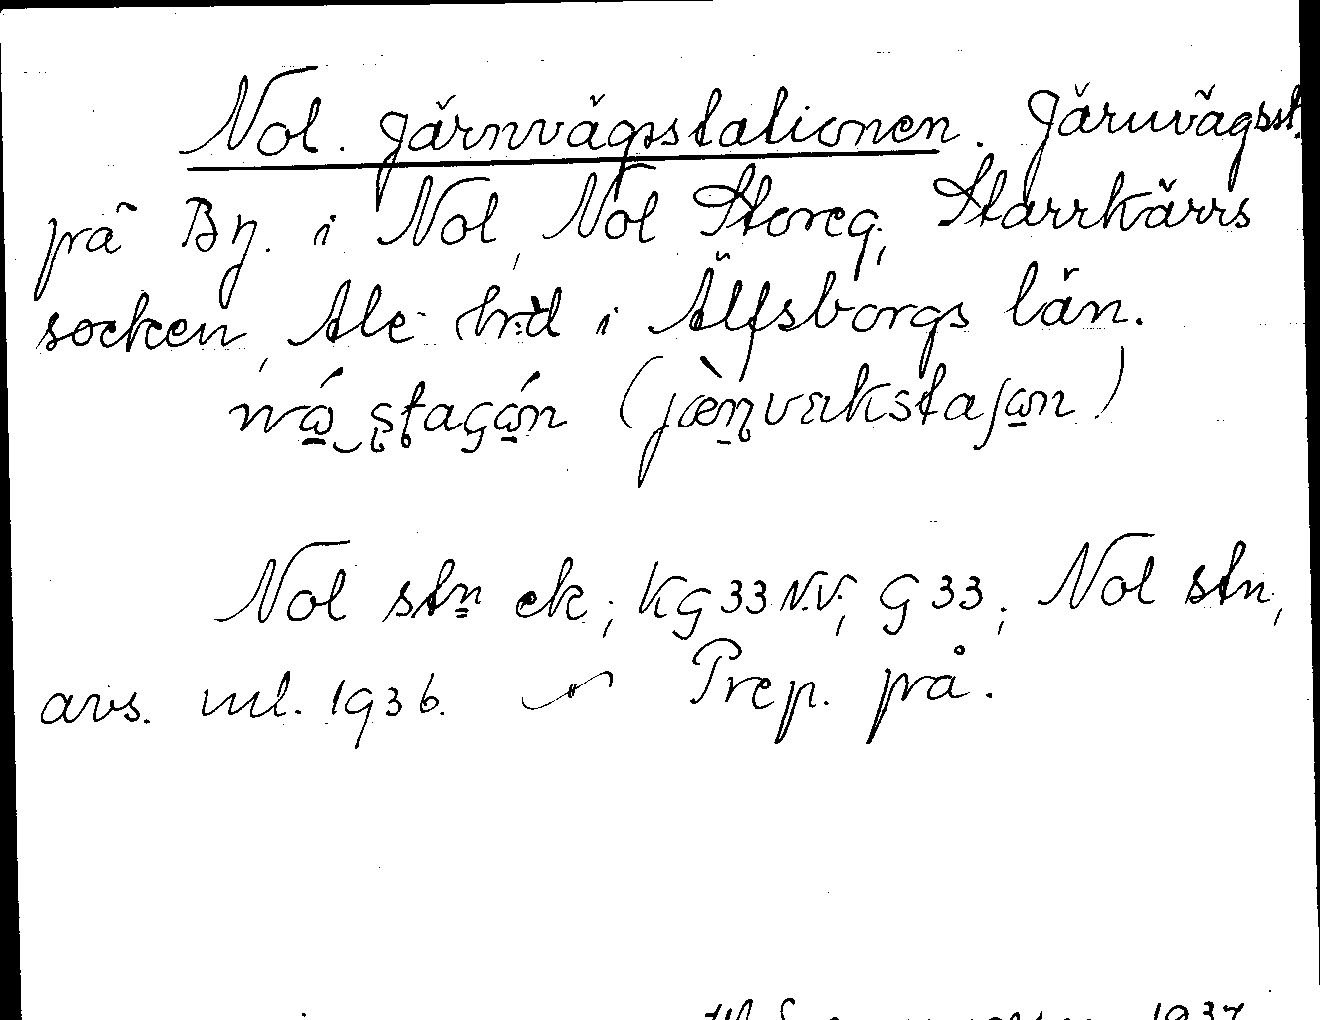 Nol. Järnvägsstationen. Järnvägsst.
på By. i Nol, Nol Storeg., Starrkärrs
socken, Ale hrd i Älfsborgs län.
(jæ̀n̥værkstaʃɷn)
Nol stn ek; KG 33 N.V.; G 33; Nol stn,
avs. ml. 1936. Prep. på.
1937